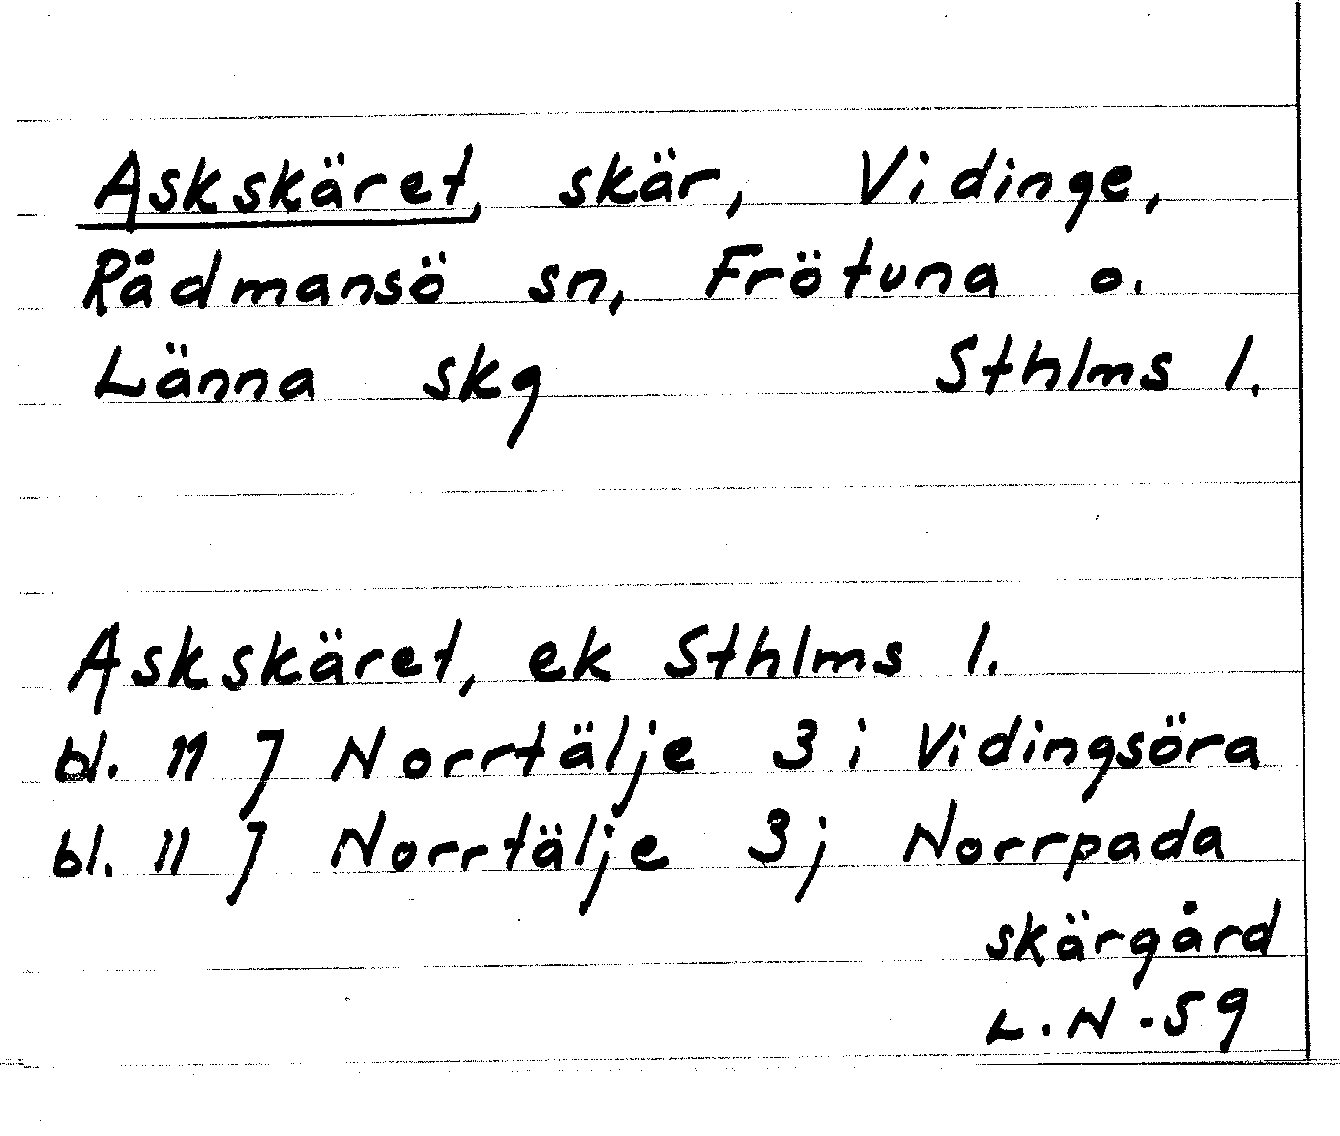 Askskäret, skär, Vidinge,
Rådmansö sn, Frötuna o.
Länna skg Sthlms l.
Askskäret, ek Sthlms l.
bl. 11 J Norrtälje 3 i Vidingsöra
bl. 11 J Norrtälje 3 j Norrpada
skärgård
L.N-59